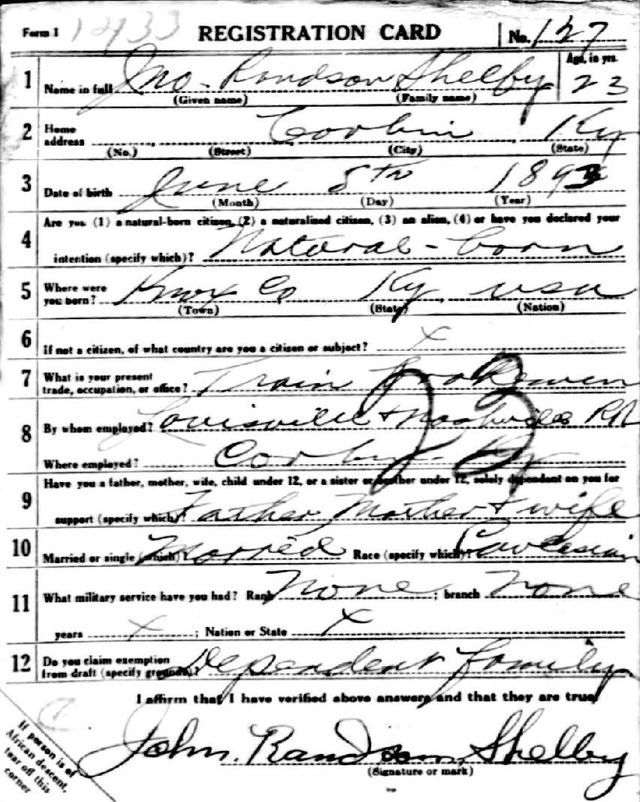 Form 1 1433 REGISTRATION CARD No. 127
1 Name in full Jno. Randson Shelby Age, in yrs. 23
(Given name) (Family name)
2 Home address Corbin Ky
(No.) (Street) (City) (State)
3 Date of birth June 5th 1893
(Month) (Day) (Year)
Are you (1) a natural-born citizen, (2) a naturalized citizen, (3) an alien, (4) or have you declared your
4 intention (specify which)? Natural-born
5 Where were you born? Knox Co Ky usa
(Town) (State) (Nation)
6 If not a citizen, of what country are you a citizen or subject? x
7 What is your present trade, occupation, or office? Train Brakeman
23
8 By whom employed? Louisville & Nashville RR
Where employed? Corbin Ky
Have you a father, mother, wife, child under 12, or a sister or brother under 12, solely dependent on you for
9 support (specify which)? Father Mother & wife
10 Married or single (which)? Married Race (specify which)? Caucasian
11 What military service have you had? Rank None ; branch None
years x ; Nation or State x
12 Do you claim exemption from draft (specify grounds)? Dependent family
I affirm that I have verified above answers and that they are true
John. Randson. Shelby
(Signature or mark)
If person is of
African descent,
tear off this
corner